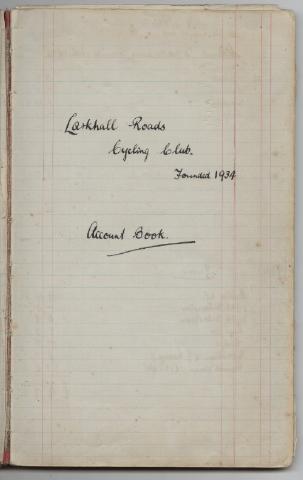 Larkhall Roads
Cycling Club.
Founded 1934
Account Book.